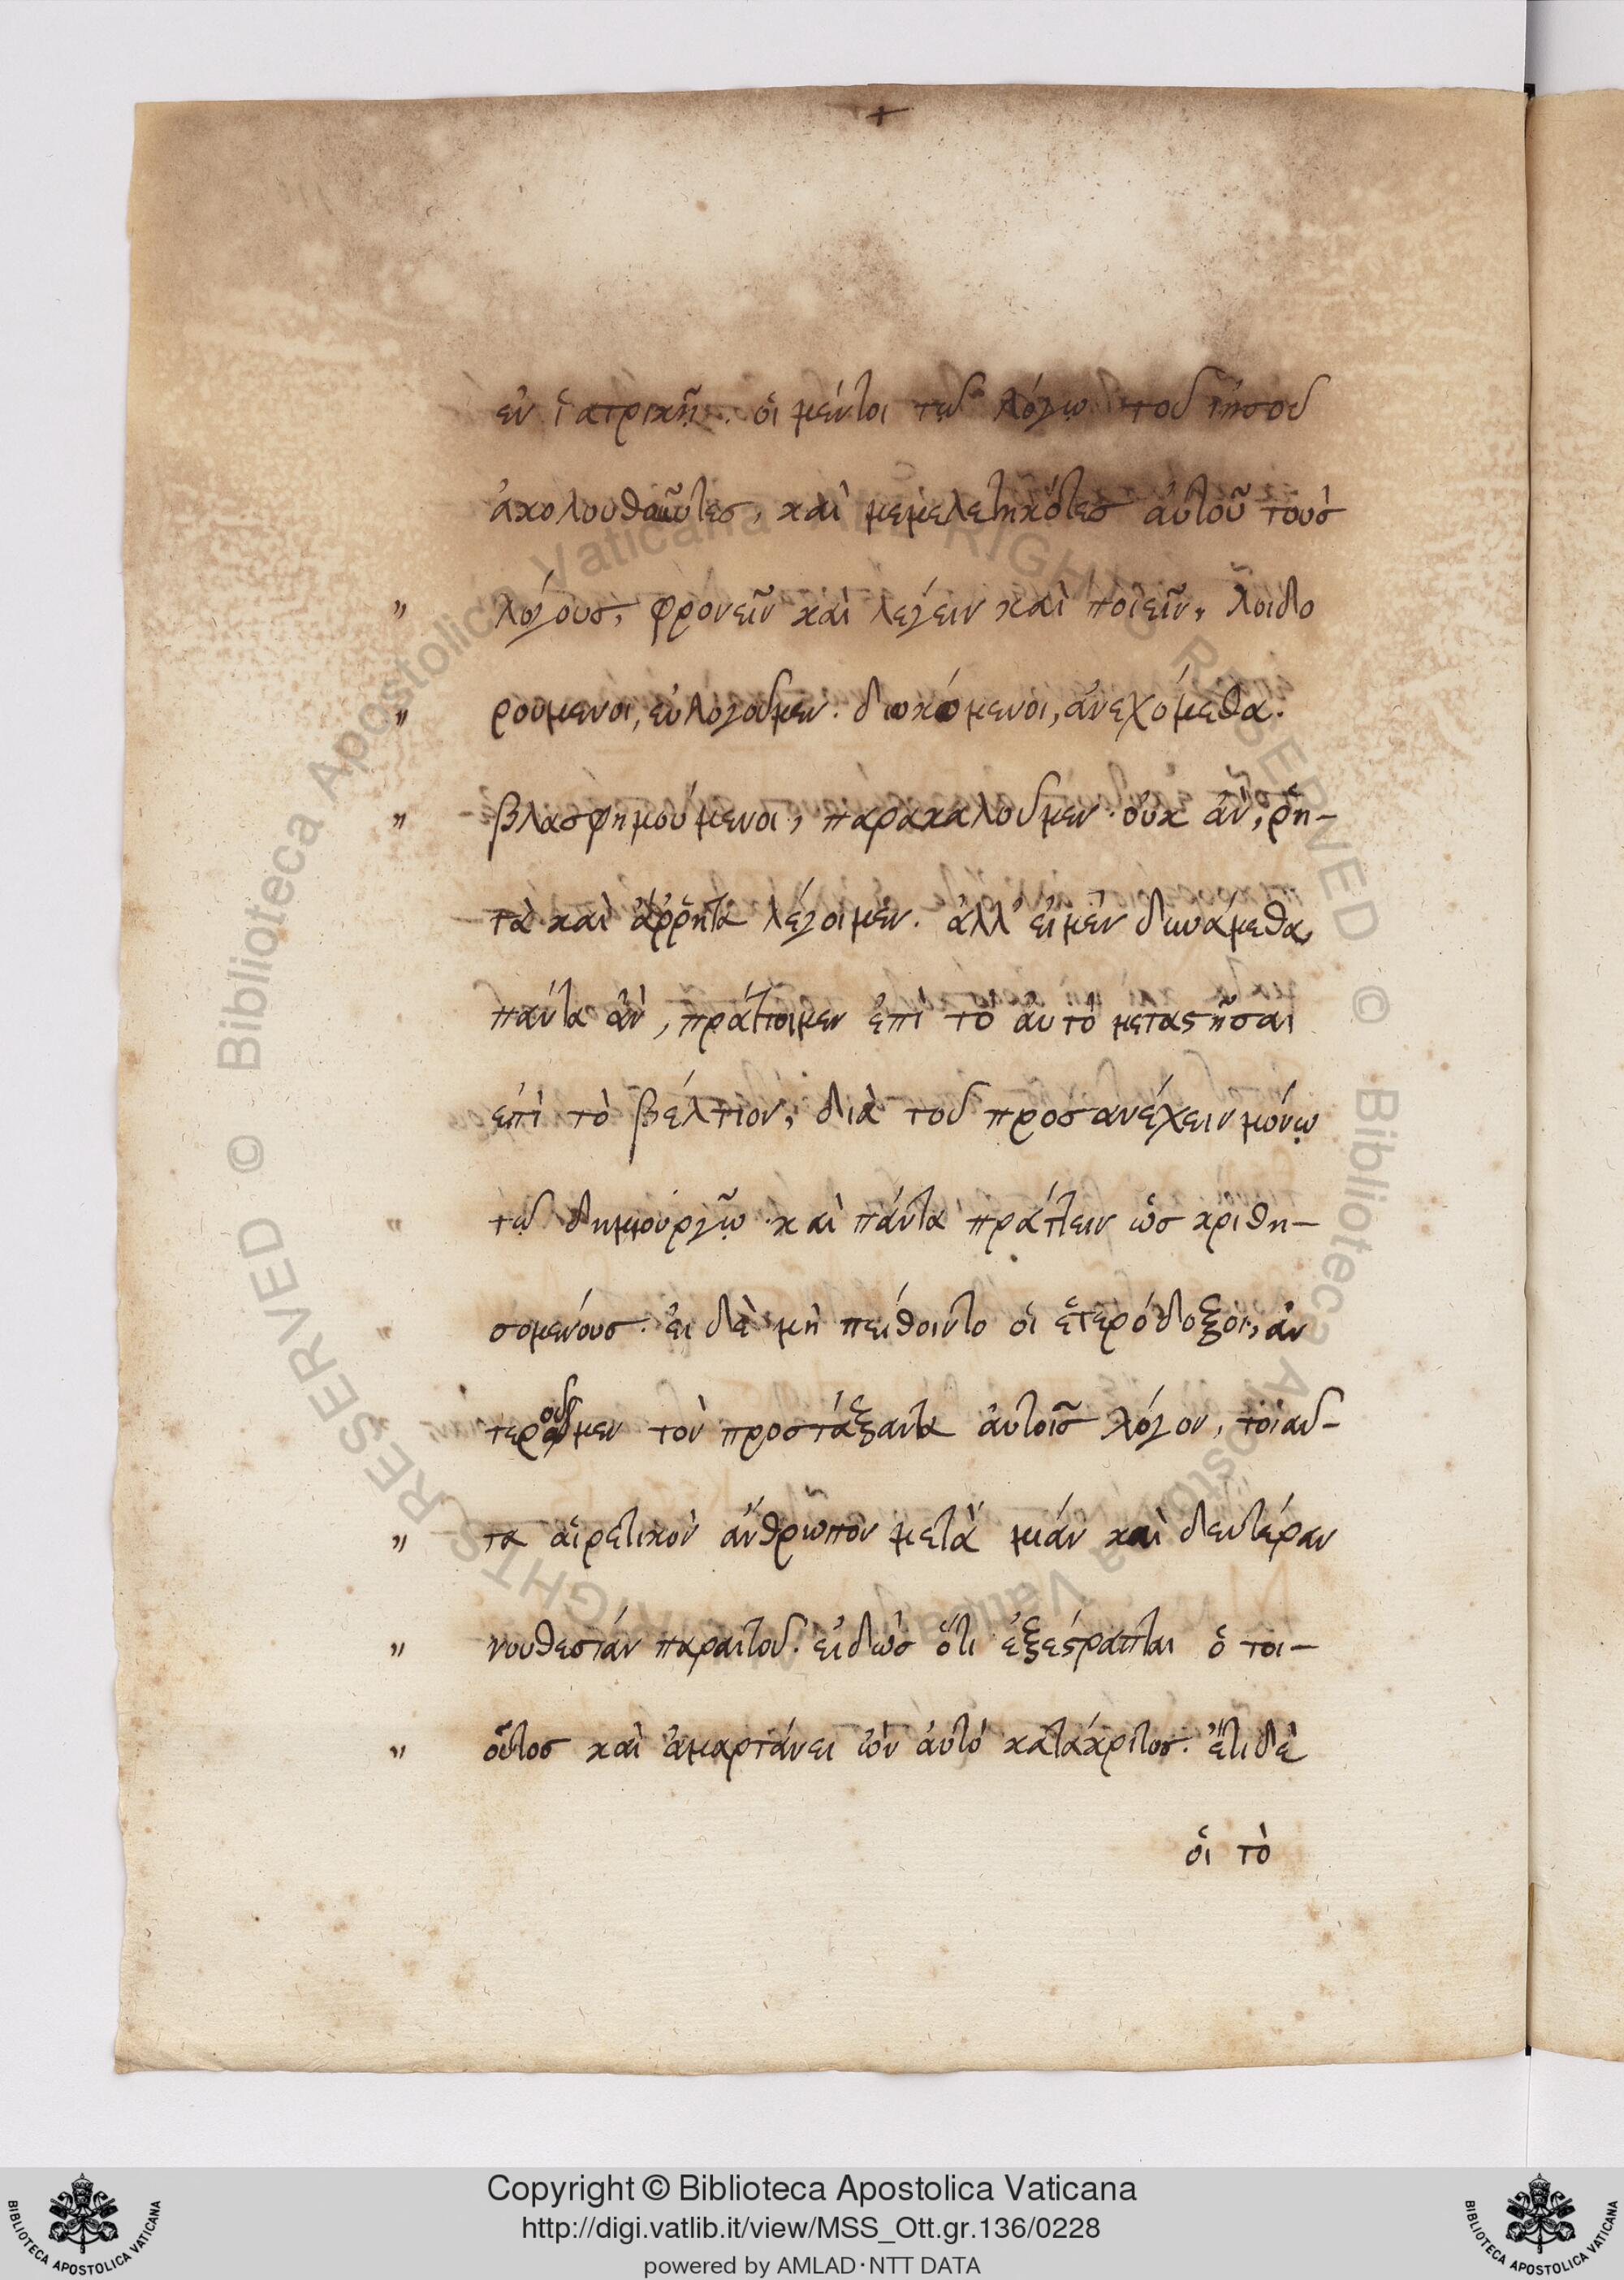 ἐν ἰατρικῇ. οἱ μέντοι τῷ λόγῳ τοῦ ἰησοῦ
ἀκολουθοῦντες, καὶ μεμελετηκότες αὐτοῦ τοὺς
" λόγους, φρονεῖν καὶ λέγειν καὶ ποιεῖν, λοιδο
" ρούμενοι, εὐλογοῦμεν. διωκόμενοι, ἀνεχόμεθα.
" βλασφημούμενοι, παρακαλοῦμεν. οὐκ ἂν, ῥη-
τὰ καὶ ἄρρητα λέγοιμεν. ἀλλ' εἰ μὲν δυνάμεθα,
πάντα ἂν, πράττοιμεν ἐπὶ τὸ αὐτὸ μεταστῆσαι
ἐπὶ τὸ βέλτιον, διὰ τοῦ προσανέχειν μόνῳ
" τῷ δημιουργῷ καὶ πάντα πράττειν ὡς κριθη-
" σομένους. εἰ δὲ μὴ πείθοιντο οἱ ἑτερόδοξοι, ἀν
τεροῦμεν τὸν προστάξαντα αὐτοῖς λόγον, τοιαῦ-
" τα αἱρετικὸν ἄνθρωπον μετὰ μίαν καὶ δευτέραν
" νουθεσίαν παραιτοῦ. εἰδὼς ὅτι ἐξέστραπται ὁ τοι-
" οῦτος καὶ ἁμαρτάνει ὢν αὐτὸ κατάκριτος. ἔτι δὲ
οἱ τὸ
Copyright © Biblioteca Apostolica Vaticana
http://digi.vatlib.it/view/MSS_Ott.gr.136/0228
powered by AMLAD·NTT DATA
BIBLIOTECA APOSTOLICA VATICANA
BIBLIOTECA APOSTOLICA VATICANA
© Biblioteca Apostolica Vaticana ALL RIGHTS RESERVED © Biblioteca Apostolica Vaticana ALL RIGHTS RESERVED